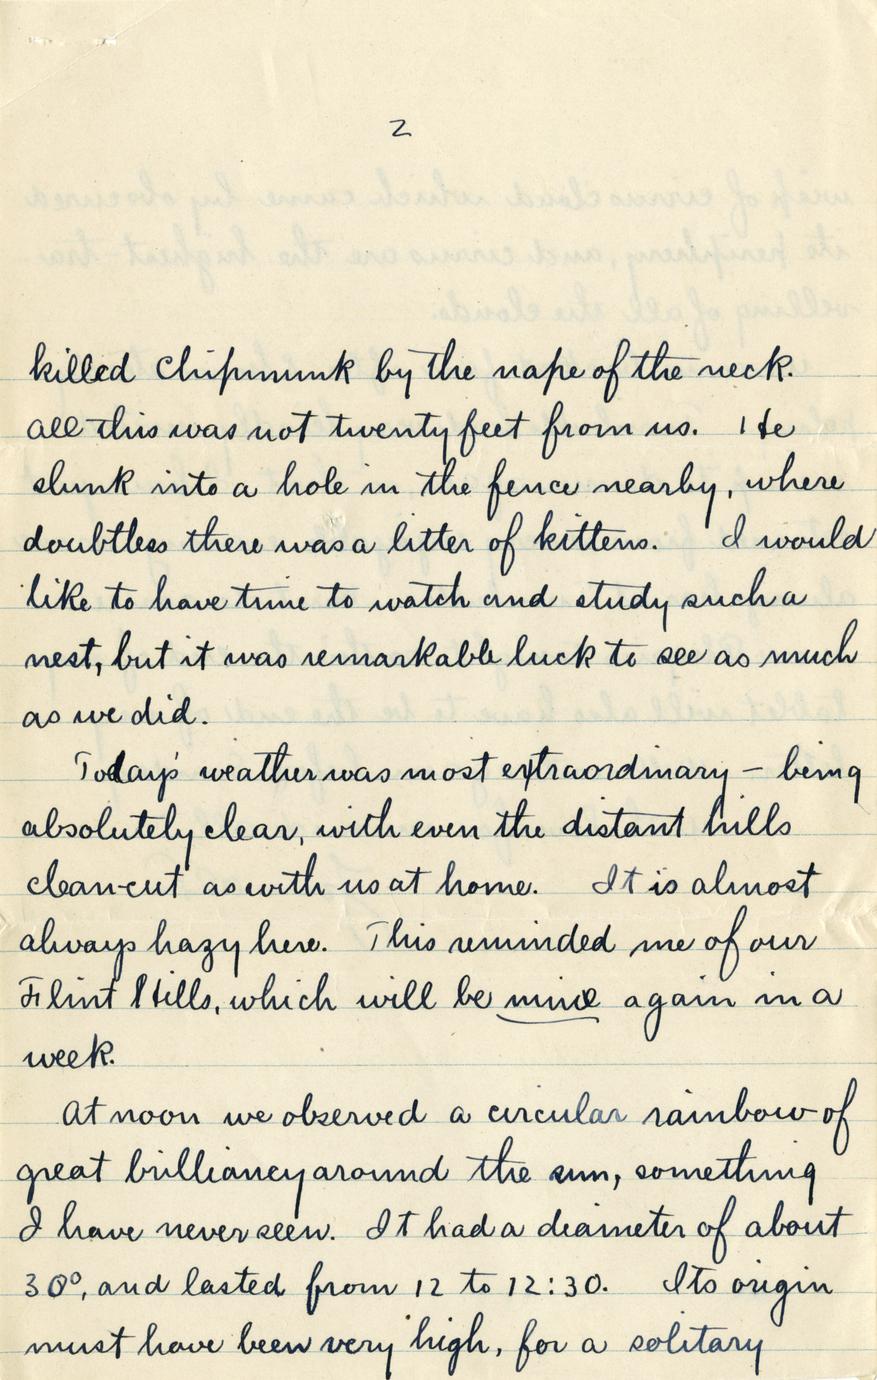 2
killed chipmunk by the nape of the neck.
All this was not twenty feet from us. He
slunk into a hole in the fence nearby, where
doubtless there was a litter of kittens. I would
like to have time to watch and study such a
nest, but it was remarkable luck to see as much
as we did.
Today's weather was most extraordinary – being
absolutely clear, with even the distant hills
clean-cut as with us at home. It is almost
always hazy here. This reminded me of our
Flint Hills, which will be mine again in a
week.
At noon we observed a circular rainbow of
great brilliancy around the sun, something
I have never seen. It had a diameter of about
30°, and lasted from 12 to 12:30. Its origin
must have been very high, for a solitary